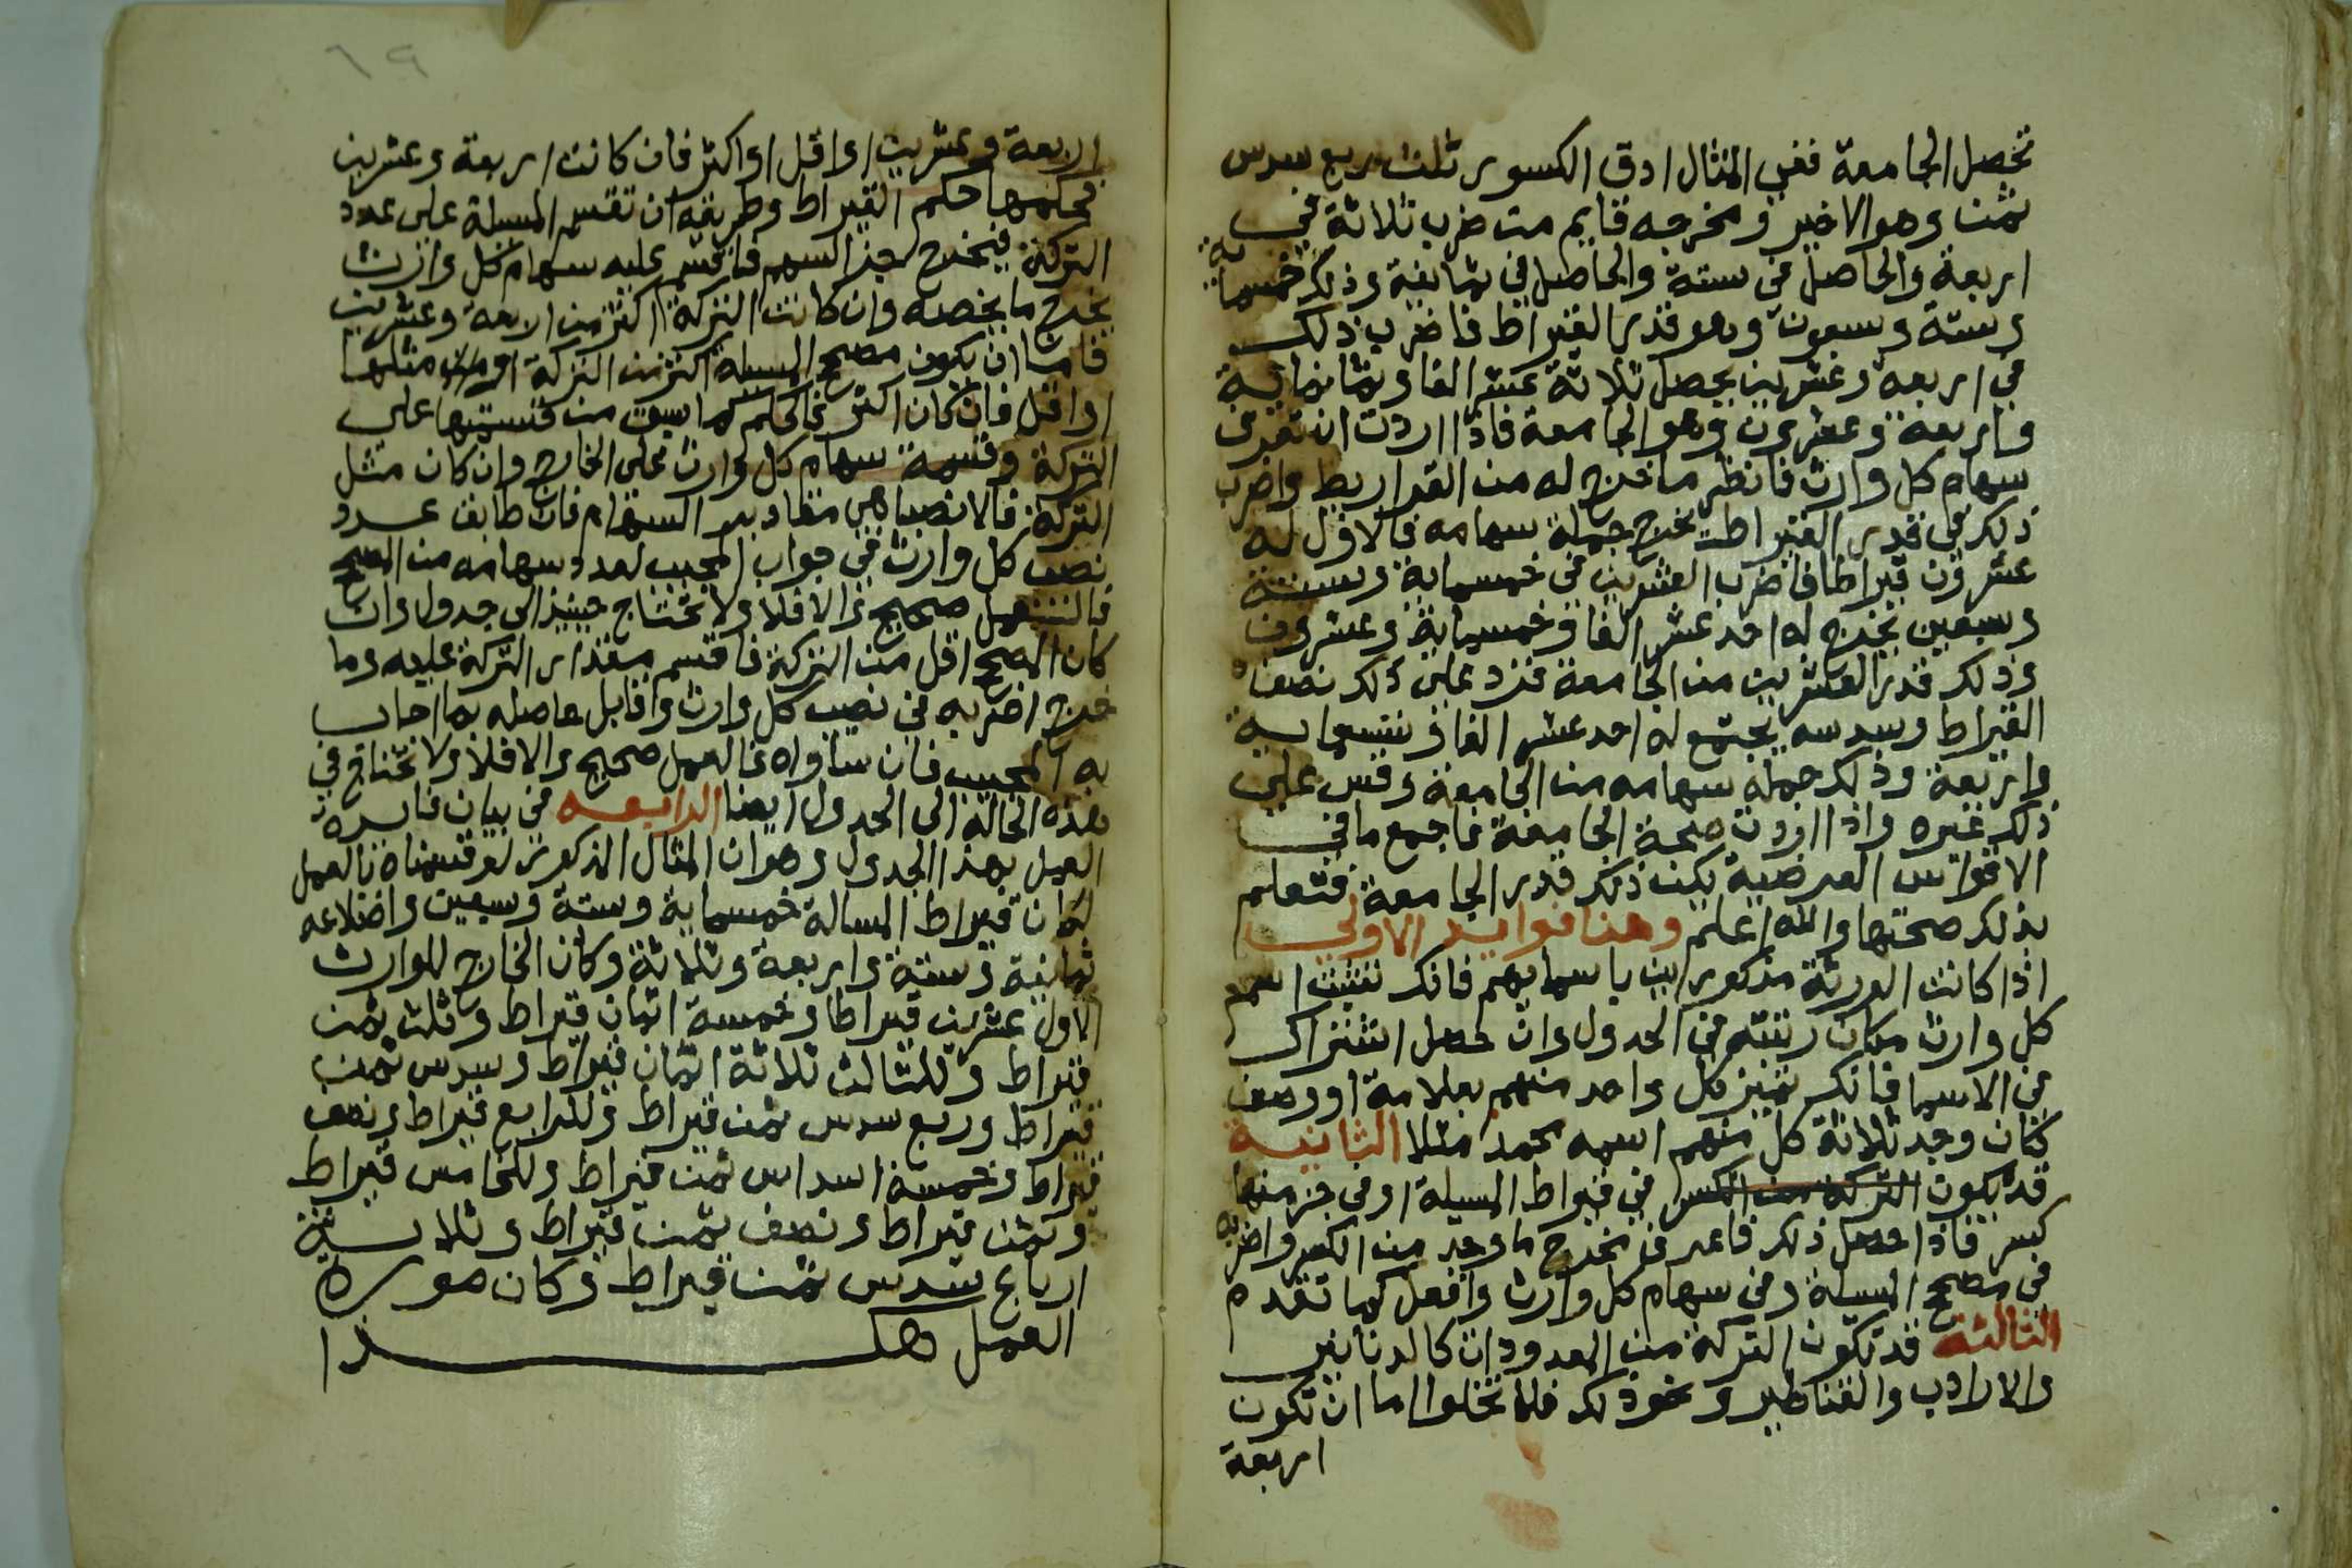 تحصل الجامعة ففي المثال ادق الكسور ثلث ربع سدس
ثمن وهو الاخير ومخرجه قايم من ضرب ثلاثة في
اربعة والحاصل في ستة والحاصل في ثمانية وذلك خمسماية
وستة وسبعون وهو قدر القيراط فاضرب ذلك
في اربعة وعشرين يحصل ثلاثة عشر الفا وثمانماية
واربعة وعشرون وهو الجامعة فاذا اردت ان تعرف
سهام كل وارث فانظر ما خرج له من القراريط واضرب
ذلك في قدر القيراط يخرج جملة سهامه فالاول له
عشرون قيراطا فاضرب العشرين في خمسماية وستة
وسبعين يخرج له احد عشر الفا وخمسماية وعشرون
وذلك قدر العشرين من الجامعة فزد على ذلك نصف
القيراط وسدسه يجتمع له احد عشر الفا وتسعماية
واربعة وذلك جملة سهامه من الجامعة وقس على
ذلك غيره واذا اردت صحة الجامعة فاجمع ما في
الاقواس العرضية يكن ذلك قدر الجامعة فتعلم
بذلك صحتها والله اعلم وهنا فوايد الاولي
اذا كانت الورثة مذكورين باسمايهم فانك تثبت اسم
كل وارث مكان رتبته في الجدول وان حصل اشتراك
في الاسما فانك تميز كل واحد منهم بعلامة او وصف
كان وجد ثلاثة كل منهم اسمه محمد مثلا الثانية
قد يكون في قيراط المسيلة او في جز منها
كسر فاذا حصل ذلك فاعرف مخرج ما وجد من الكسر واضربه
في مصحح المسيلة وفي سهام كل وارث وافعل كما تقدم
الثالثة قد تكون التركة من المعدودات كالدنانير
والارادب والقناطير ونحو ذلك فلا تخلوا اما ان تكون
اربعة
٦٩
اربعة وعشرين او اقل او اكثر فان كانت اربعة وعشرين
فحكمها حكم القيراط وطريقه ان تقسم المسيلة على عدد
التركة فيخرج جز السهم فاقسم عليه سهام كل وارث
يخرج ما يخصه وان كانت التركة اكثر من اربعة وعشرين
فاما ان يكون مصحح المسيلة اكثر من التركة او مثلها
او اقل فان كان اكثر فالحكم كما سبق من قسمتها على
التركة وقسمة سهام كل وارث على الخارج وان كان مثل
التركة فالانصبا هي مقادير السهام فان طابق عدد
نصيب كل وارث في جواب المجيب لعدد سهامه من المصحح
فالعمل صحيح والا فلا ولا تحتاج حينيذ الى جدول وان
كان المصحح اقل من التركة فاقسم مقدار التركة عليه وما
خرج اضربه في نصيب كل وارث وقابل حاصله بما اجاب
به المجيب فان ساواه فالعمل صحيح والا فلا ولا تحتاج في
هذه الحالة الى الجدول ايضا الرابعه في بيان فايدة
العمل بهذا الجدول وهو ان المثال المذكور لو قسمناه بالعمل
لكان قيراط المسالة خمسماية وستة وسبعين واضلاعه
ثمانية وستة واربعة وثلاثة وكان الخارج للوارث
الاول عشرين قيراطا وخمسة اثمان قيراط وثلث ثمن
قيراط وللثالث ثلاثة اثمان قيراط وسدس ثمن
قيراط وربع سدس ثمن قيراط وللرابع قيراط ونصف
قيراط وخمسة اسداس ثمن قيراط وللخامس قيراط
وثمن قيراط ونصف ثمن قيراط وثلاثة
ارباع سدس ثمن قيراط وكان صورة
العمل هكذا